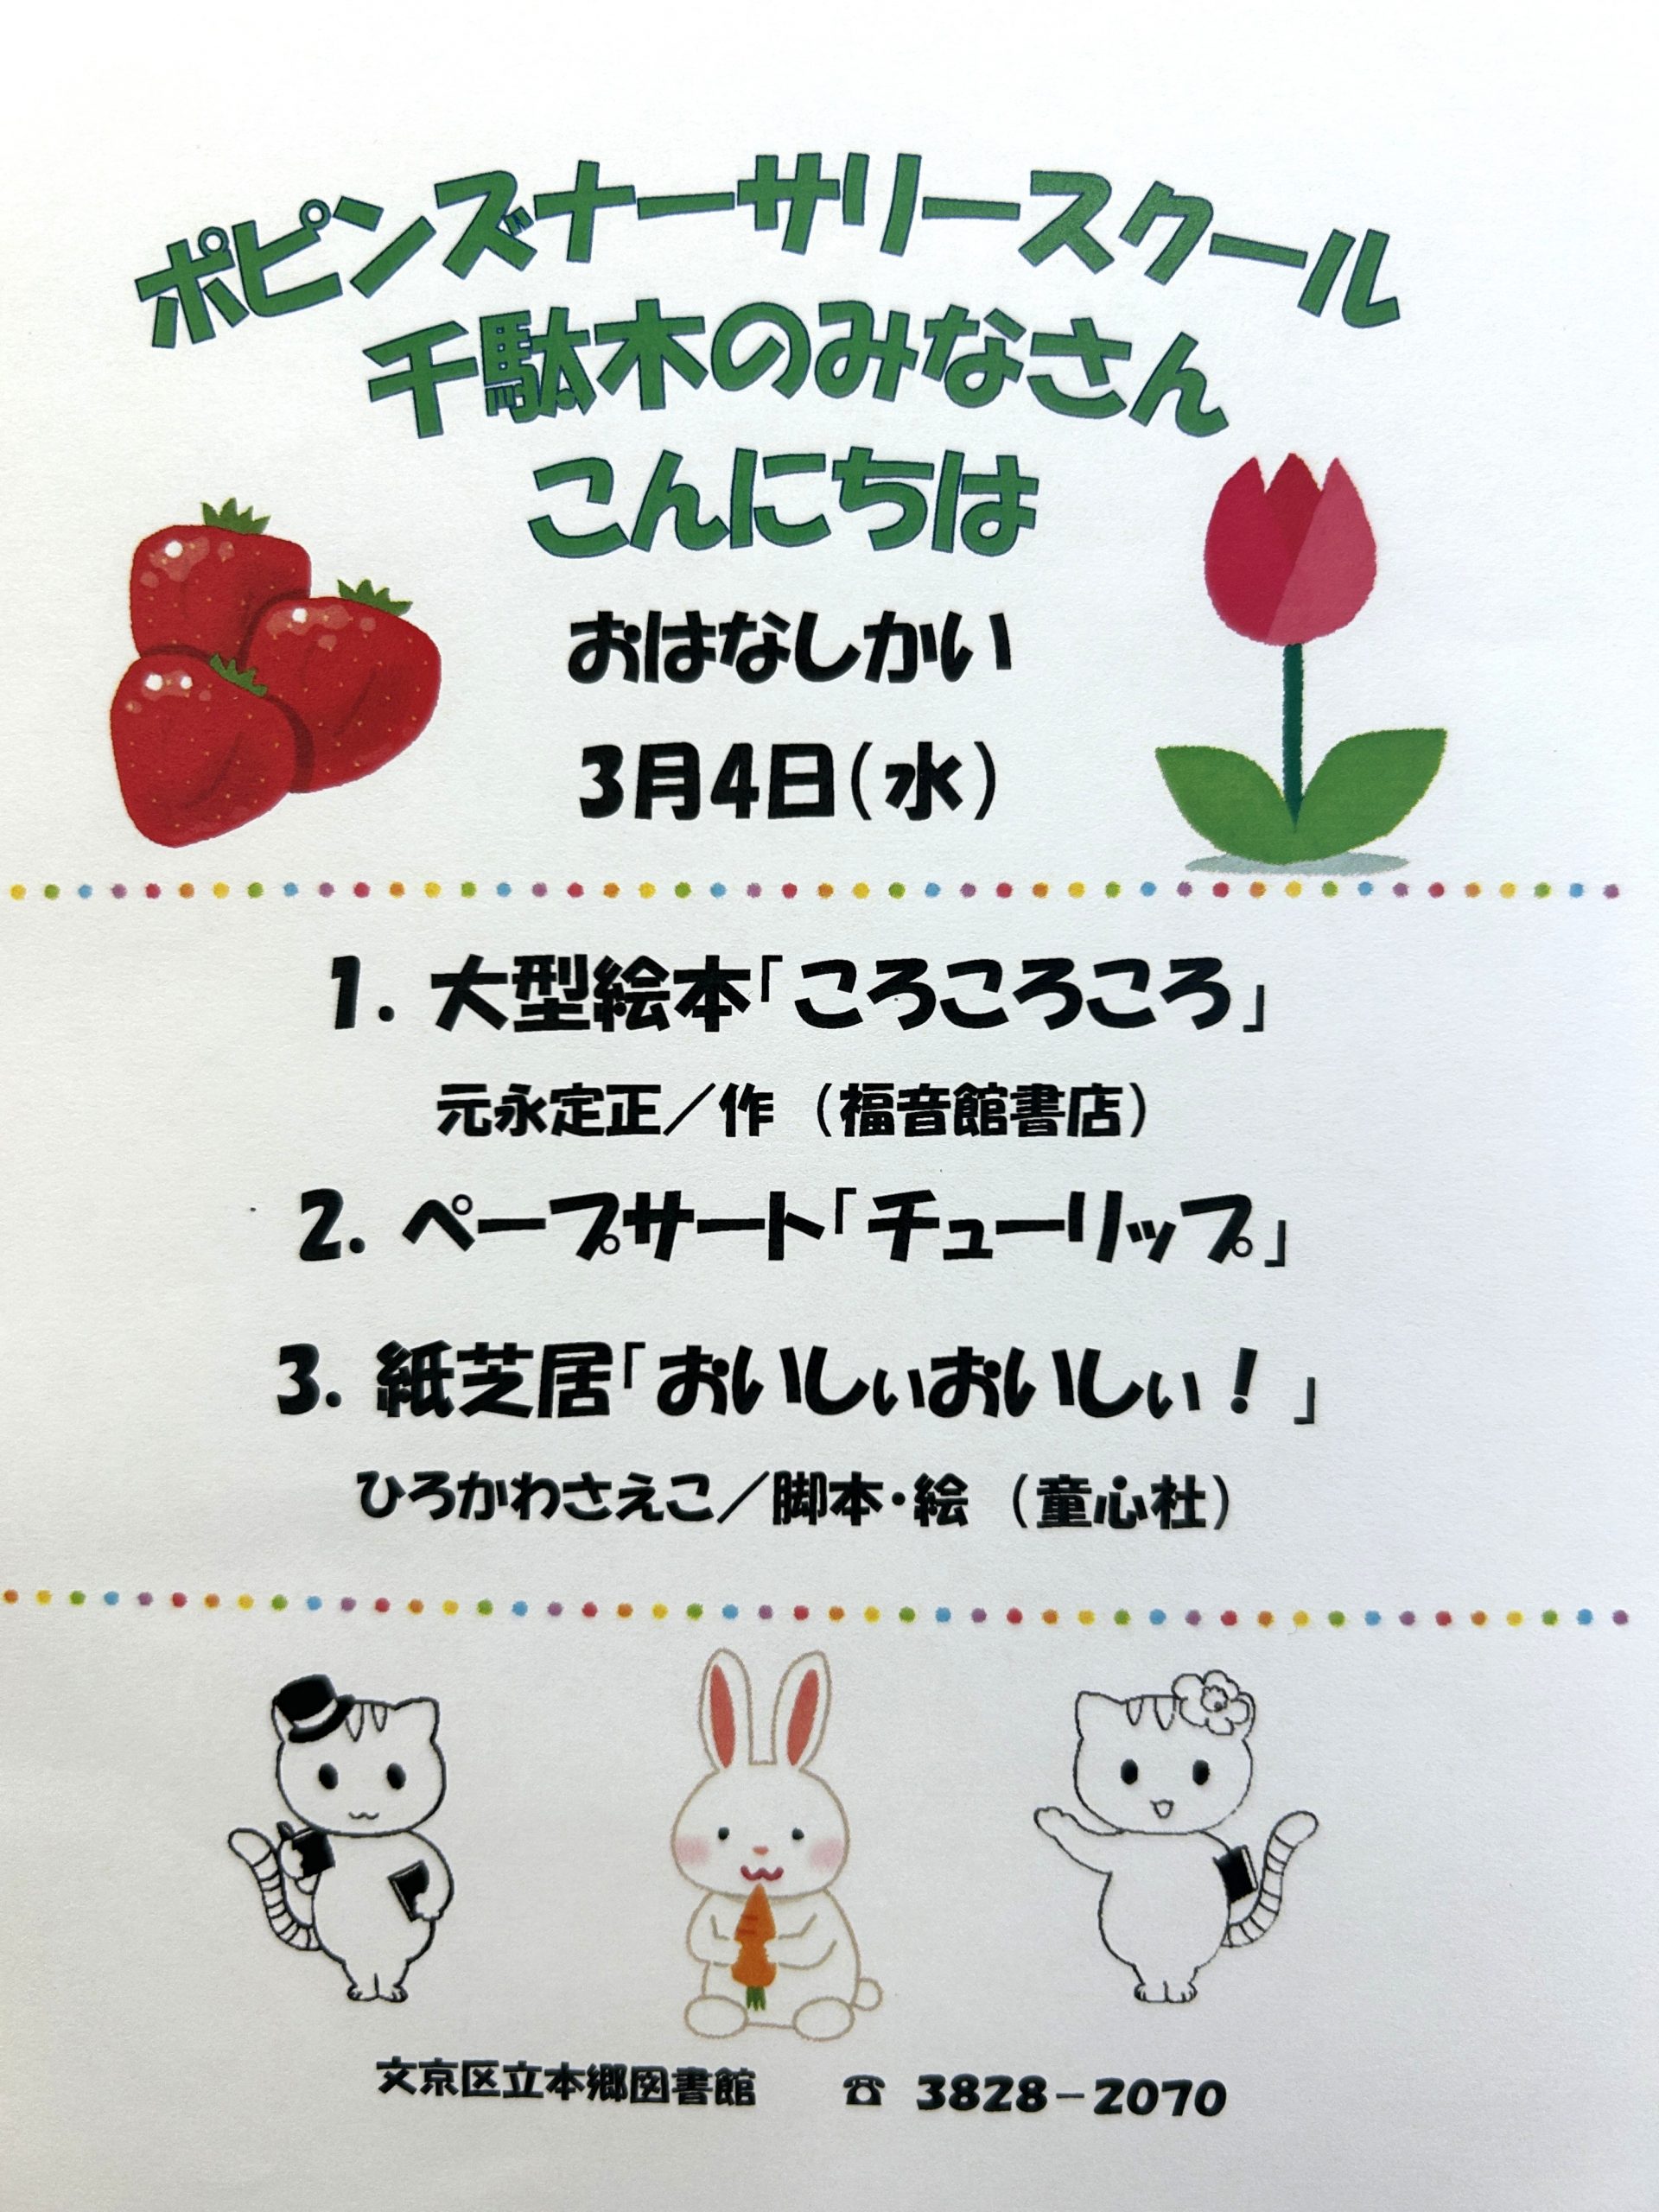 ポピンズナーサリースクール
千駄木のみなさん
こんにちは
おはなしかい
3月4日(水)
1. 大型絵本「ころころころ」
元永定正／作 (福音館書店)
2. ペープサート「チューリップ」
3. 紙芝居「おいしぃおいしぃ！」
ひろかわさえこ／脚本・絵 (童心社)
文京区立本郷図書館 ☎ 3828-2070